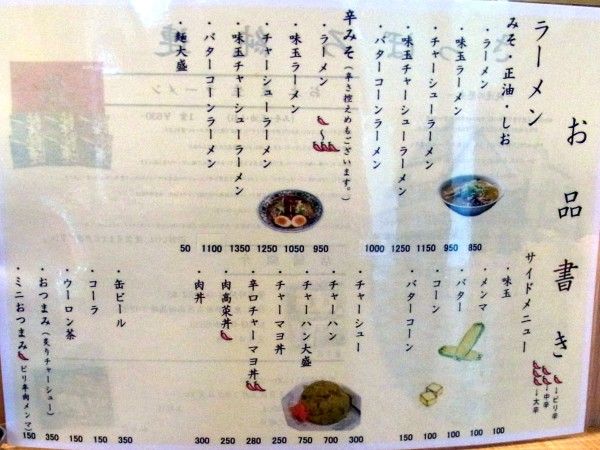 お品書き
ラーメン
みそ・正油・しお
・ラーメン 850
・味玉ラーメン 950
・チャーシューラーメン 1150
・味玉チャーシューラーメン 1250
・バターコーンラーメン 1000
辛みそ（辛さ控えめもございます。）
・ラーメン 〜 950
・味玉ラーメン 1050
・チャーシューラーメン 1250
・味玉チャーシューラーメン 1350
・バターコーンラーメン 1100
・麺大盛 50
←ピリ辛
←中辛
←大辛
サイドメニュー
・味玉 100
・メンマ 100
・バター 100
・コーン 100
・バターコーン 150
・チャーシュー 300
・チャーハン 700
・チャーハン大盛 900
・チャーマヨ丼 250
・辛口チャーマヨ丼 280
・肉高菜丼 250
・肉丼 300
・缶ビール 350
・コーラ 150
・ウーロン茶 150
・おつまみ（炙りチャーシュー） 350
・ミニおつまみ（ピリ辛肉メンマ） 150